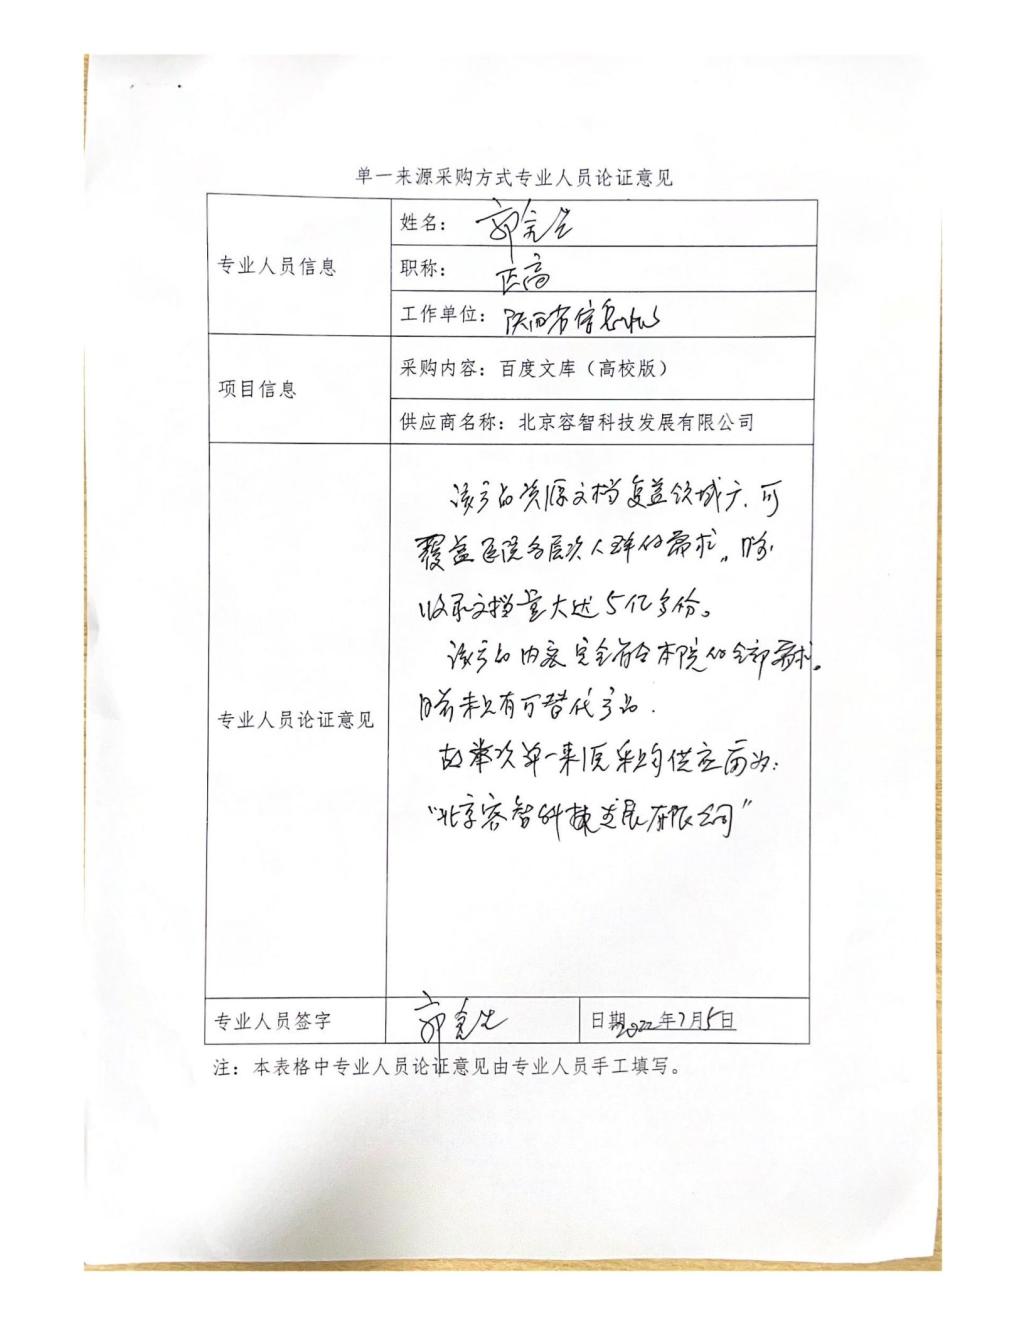 单一来源采购方式专业人员论证意见
专业人员信息
姓名：郭先生
职称：正高
工作单位：陕西省信息
项目信息
采购内容：百度文库（高校版）
供应商名称：北京容智科技发展有限公司
专业人员论证意见
该产品资源文档覆盖领域广、可
覆盖医院各层次人群的需求。
收录文档量大达5亿多份。
该产品内容完全符合本院的全部需求。
目前未有可替代产品.
故举次单一来源采购供应商为：
“北京容智科技发展有限公司”
专业人员签字
日期2022年7月5日
注：本表格中专业人员论证意见由专业人员手工填写。